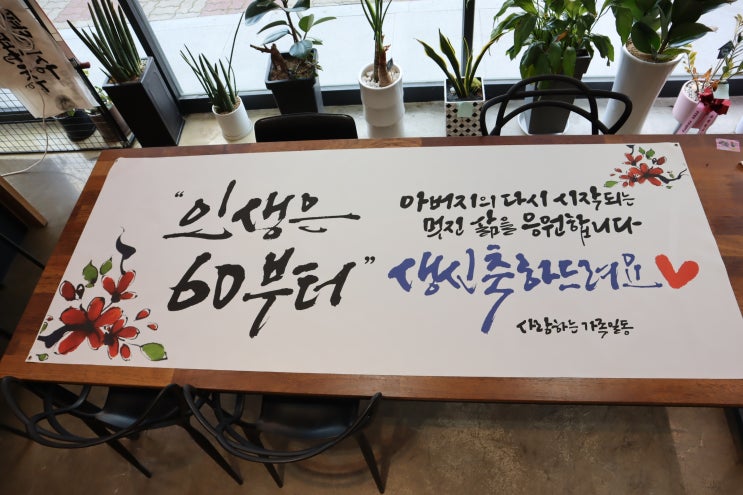 "인생은
60부터"
아버지의 다시 시작되는
멋진 삶을 응원합니다
생신축하드려요
사랑하는 가족일동